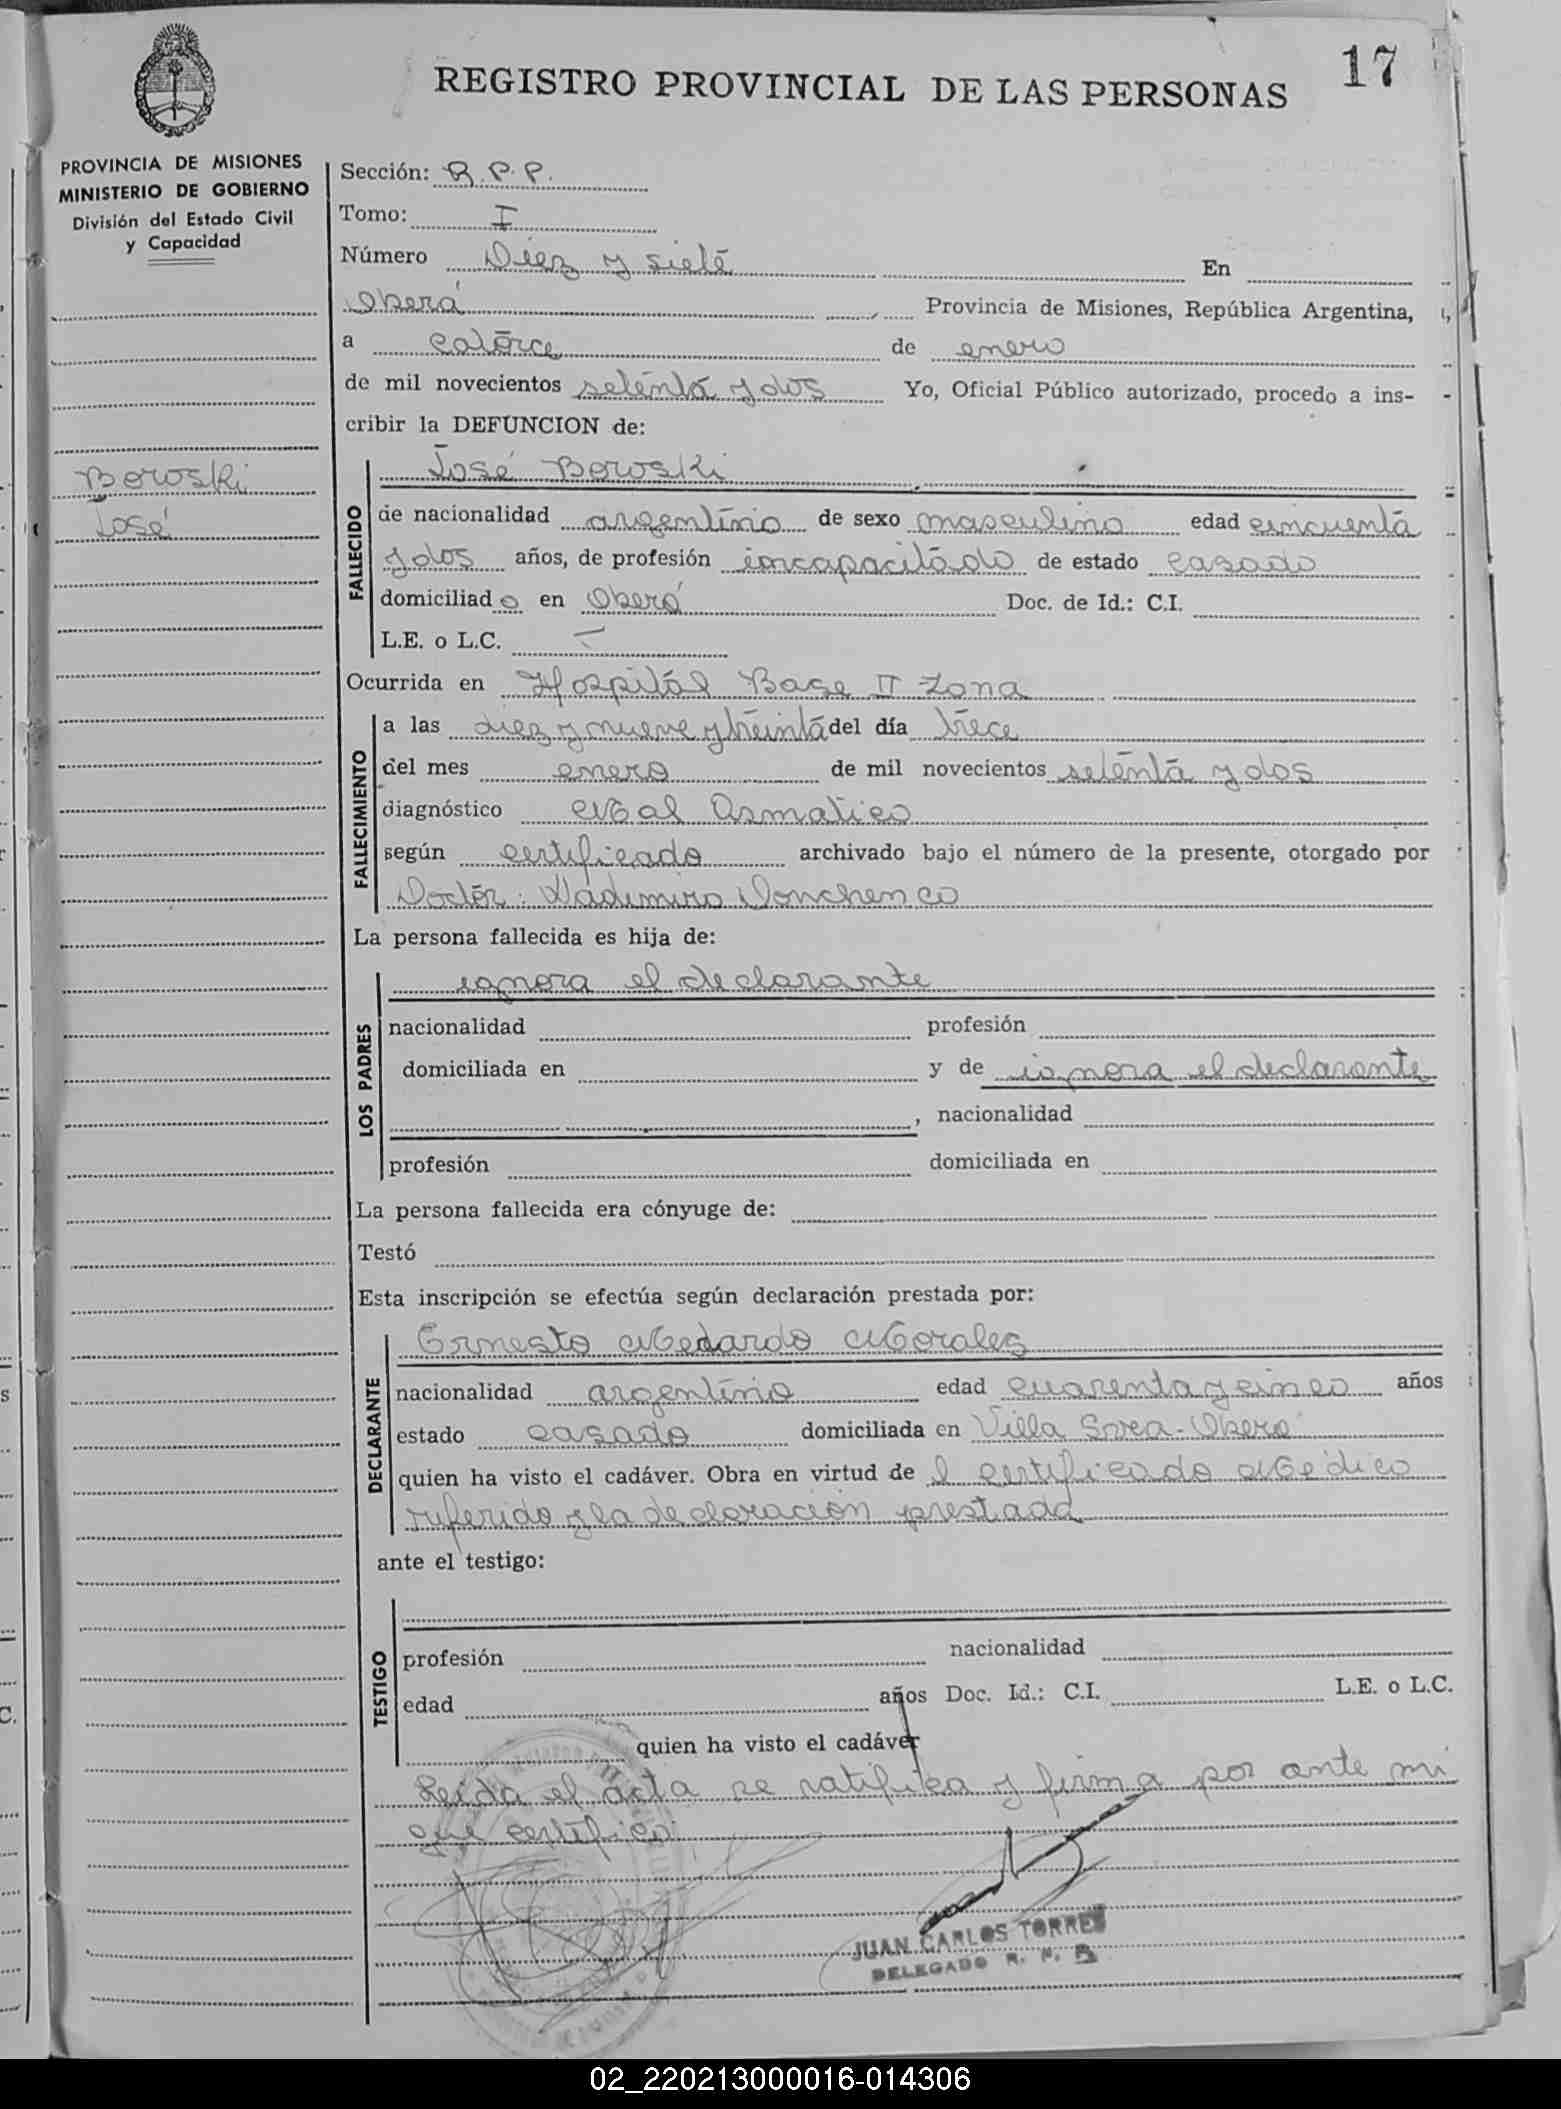 17
REGISTRO PROVINCIAL DE LAS PERSONAS
PROVINCIA DE MISIONES
MINISTERIO DE GOBIERNO
División del Estado Civil
y Capacidad
Borowski
José
Sección: R.P.P.
Tomo: I
Número Diez y siete En
Oberá Provincia de Misiones, República Argentina,
a catorce de enero
de mil novecientos setenta y dos Yo, Oficial Público autorizado, procedo a ins-
cribir la DEFUNCION de:
José Borowski
FALLECIDO
de nacionalidad argentino de sexo masculino edad cincuenta
y dos años, de profesión incapacitado de estado casado
domiciliado en Oberá Doc. de Id.: C.I.
L.E. o L.C. —
Ocurrida en Hospital Base II Zona
FALLECIMIENTO
a las diez y nueve y treinta del día trece
del mes enero de mil novecientos setenta y dos
diagnóstico Mal Asmatico
según certificado archivado bajo el número de la presente, otorgado por
Doctor: Wladimiro Donchenco
La persona fallecida es hija de:
LOS PADRES
ignora el declarante
nacionalidad profesión
domiciliada en y de ignora el declarante
, nacionalidad
profesión domiciliada en
La persona fallecida era cónyuge de:
Testó
Esta inscripción se efectúa según declaración prestada por:
DECLARANTE
Ernesto Medardo Morales
nacionalidad argentino edad cuarenta y cinco años
estado casado domiciliada en Villa Svea - Oberá
quien ha visto el cadáver. Obra en virtud del certificado Médico
referido y la declaración prestada
ante el testigo:
TESTIGO
profesión nacionalidad
edad años Doc. Id.: C.I. L.E. o L.C.
quien ha visto el cadáver
Leída el acta se ratifica y firma por ante mi
que certifico:
JUAN CARLOS TORRES
DELEGADO R. P. P.
02_220213000016-014306